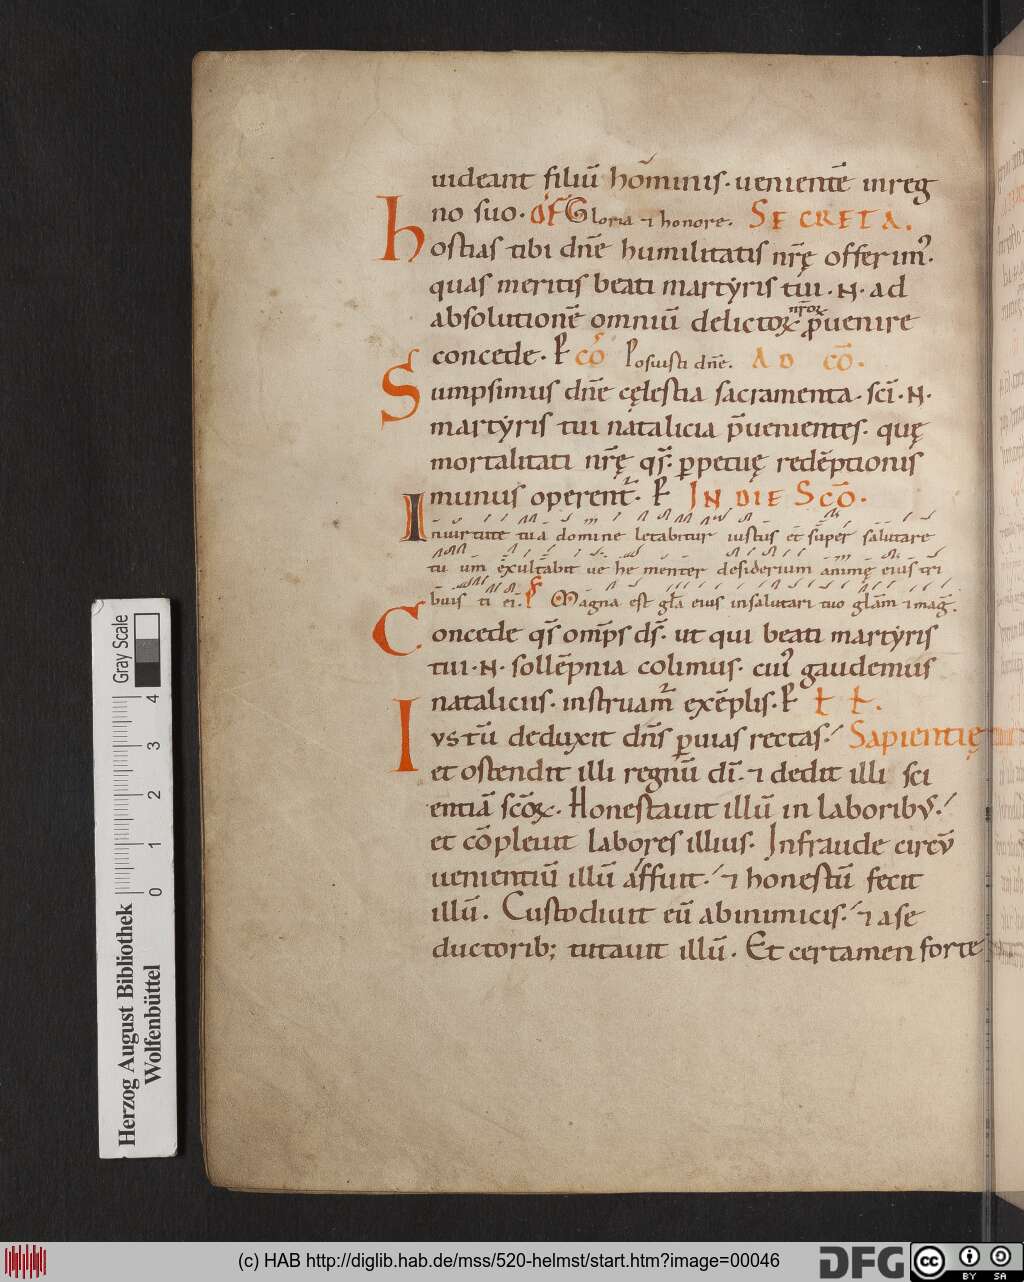 uideant filiū hōminis. uenientē inreg
no suo. OF Gloria ⁊ honore. SECRETA.
Hostias tibi dn̄e humilitatis nr̄ę offerim᷒.
quas meritis beati martẏris tui .N. ad
absolutionē omniū delictoꝝ nr̄oꝝ p̄uenire
concede. P CŌ Posuisti dn̄e. AD CŌ.
Sumpsimus dn̄e cęlestia sacramenta. sc̄i .N.
martẏris tui natalicia p̄uenientes. quę
mortalitati nr̄ę qs̄. ꝑpetuę redēptionis
munus operent᷑. P IN DIE SCŌ.
In uirtute tua domine letabitur iustus et super salutare
tu um exultabit ue he menter desiderium animę eius tri
buis ti ei. Magna est gl̄a eius insalutari tuo gl̄am ⁊ maḡ.
Concede qs̄ omp̄s ds̄. ut qui beati martẏris
tui .N. sollēpnia colimus. cui᷒ gaudemus
nataliciis. instruam᷑ exēplis. P
Iustū deduxit dn̄s ꝑuias rectas. Sapientię
et ostendit illi regnū dī. ⁊ dedit illi sci
entiā sc̄oꝝ. Honestauit illū in laboribus.
et cōpleuit labores illius. Infraude circū
uenientiū illū affuit. ⁊ honestū fecit
illū. Custodiuit eū abinimicis. ⁊ a se
ductorib; tutauit illū. Et certamen forte
Herzog August Bibliothek
Wolfenbüttel
Gray Scale
0 1 2 3 4
(c) HAB http://diglib.hab.de/mss/520-helmst/start.htm?image=00046
DFG
cc BY SA